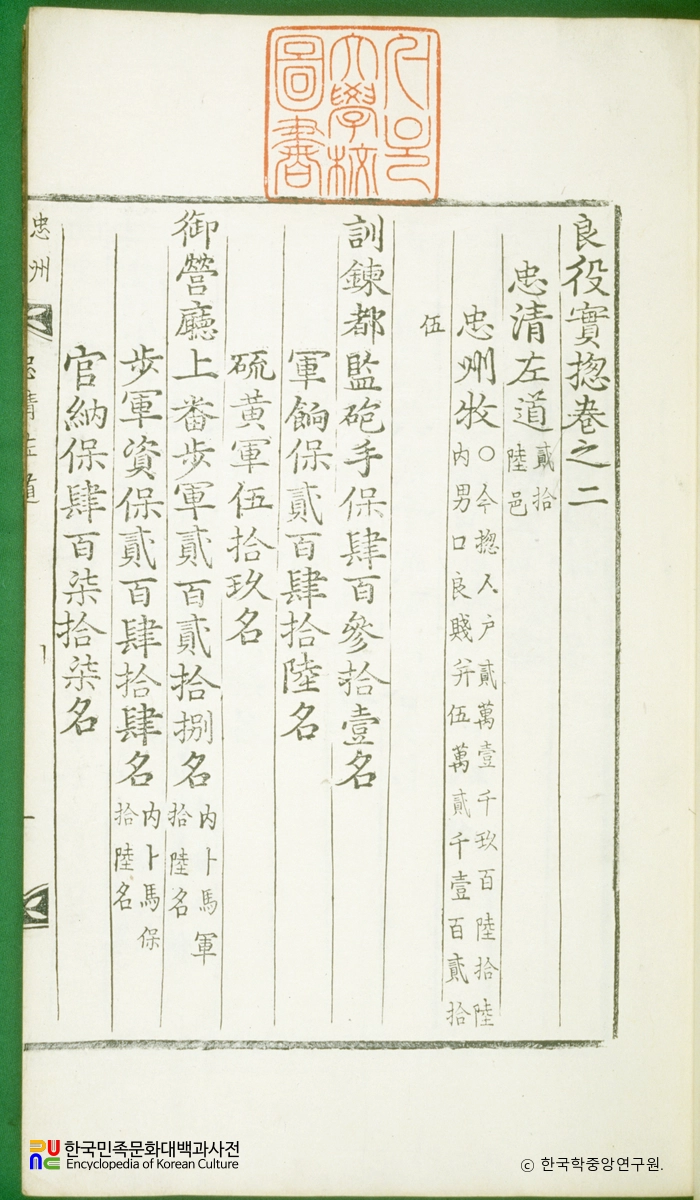 서울
大學校
圖書
良役實揔卷之二
忠清左道 貳拾
陸邑
忠州牧 ○今揔人户貳萬壹千玖百陸拾陸
内男口良賤并伍萬貳千壹百貳拾
伍
訓鍊都監砲手保肆百參拾壹名
軍餉保貳百肆拾陸名
硫黄軍伍拾玖名
御營廳上番步軍貳百貳拾捌名 内卜馬軍
拾陸名
步軍資保貳百肆拾肆名 内卜馬保
拾陸名
官納保肆百柒拾柒名
忠州
忠清左道
한국민족문화대백과사전
Encyclopedia of Korean Culture
ⓒ 한국학중앙연구원.